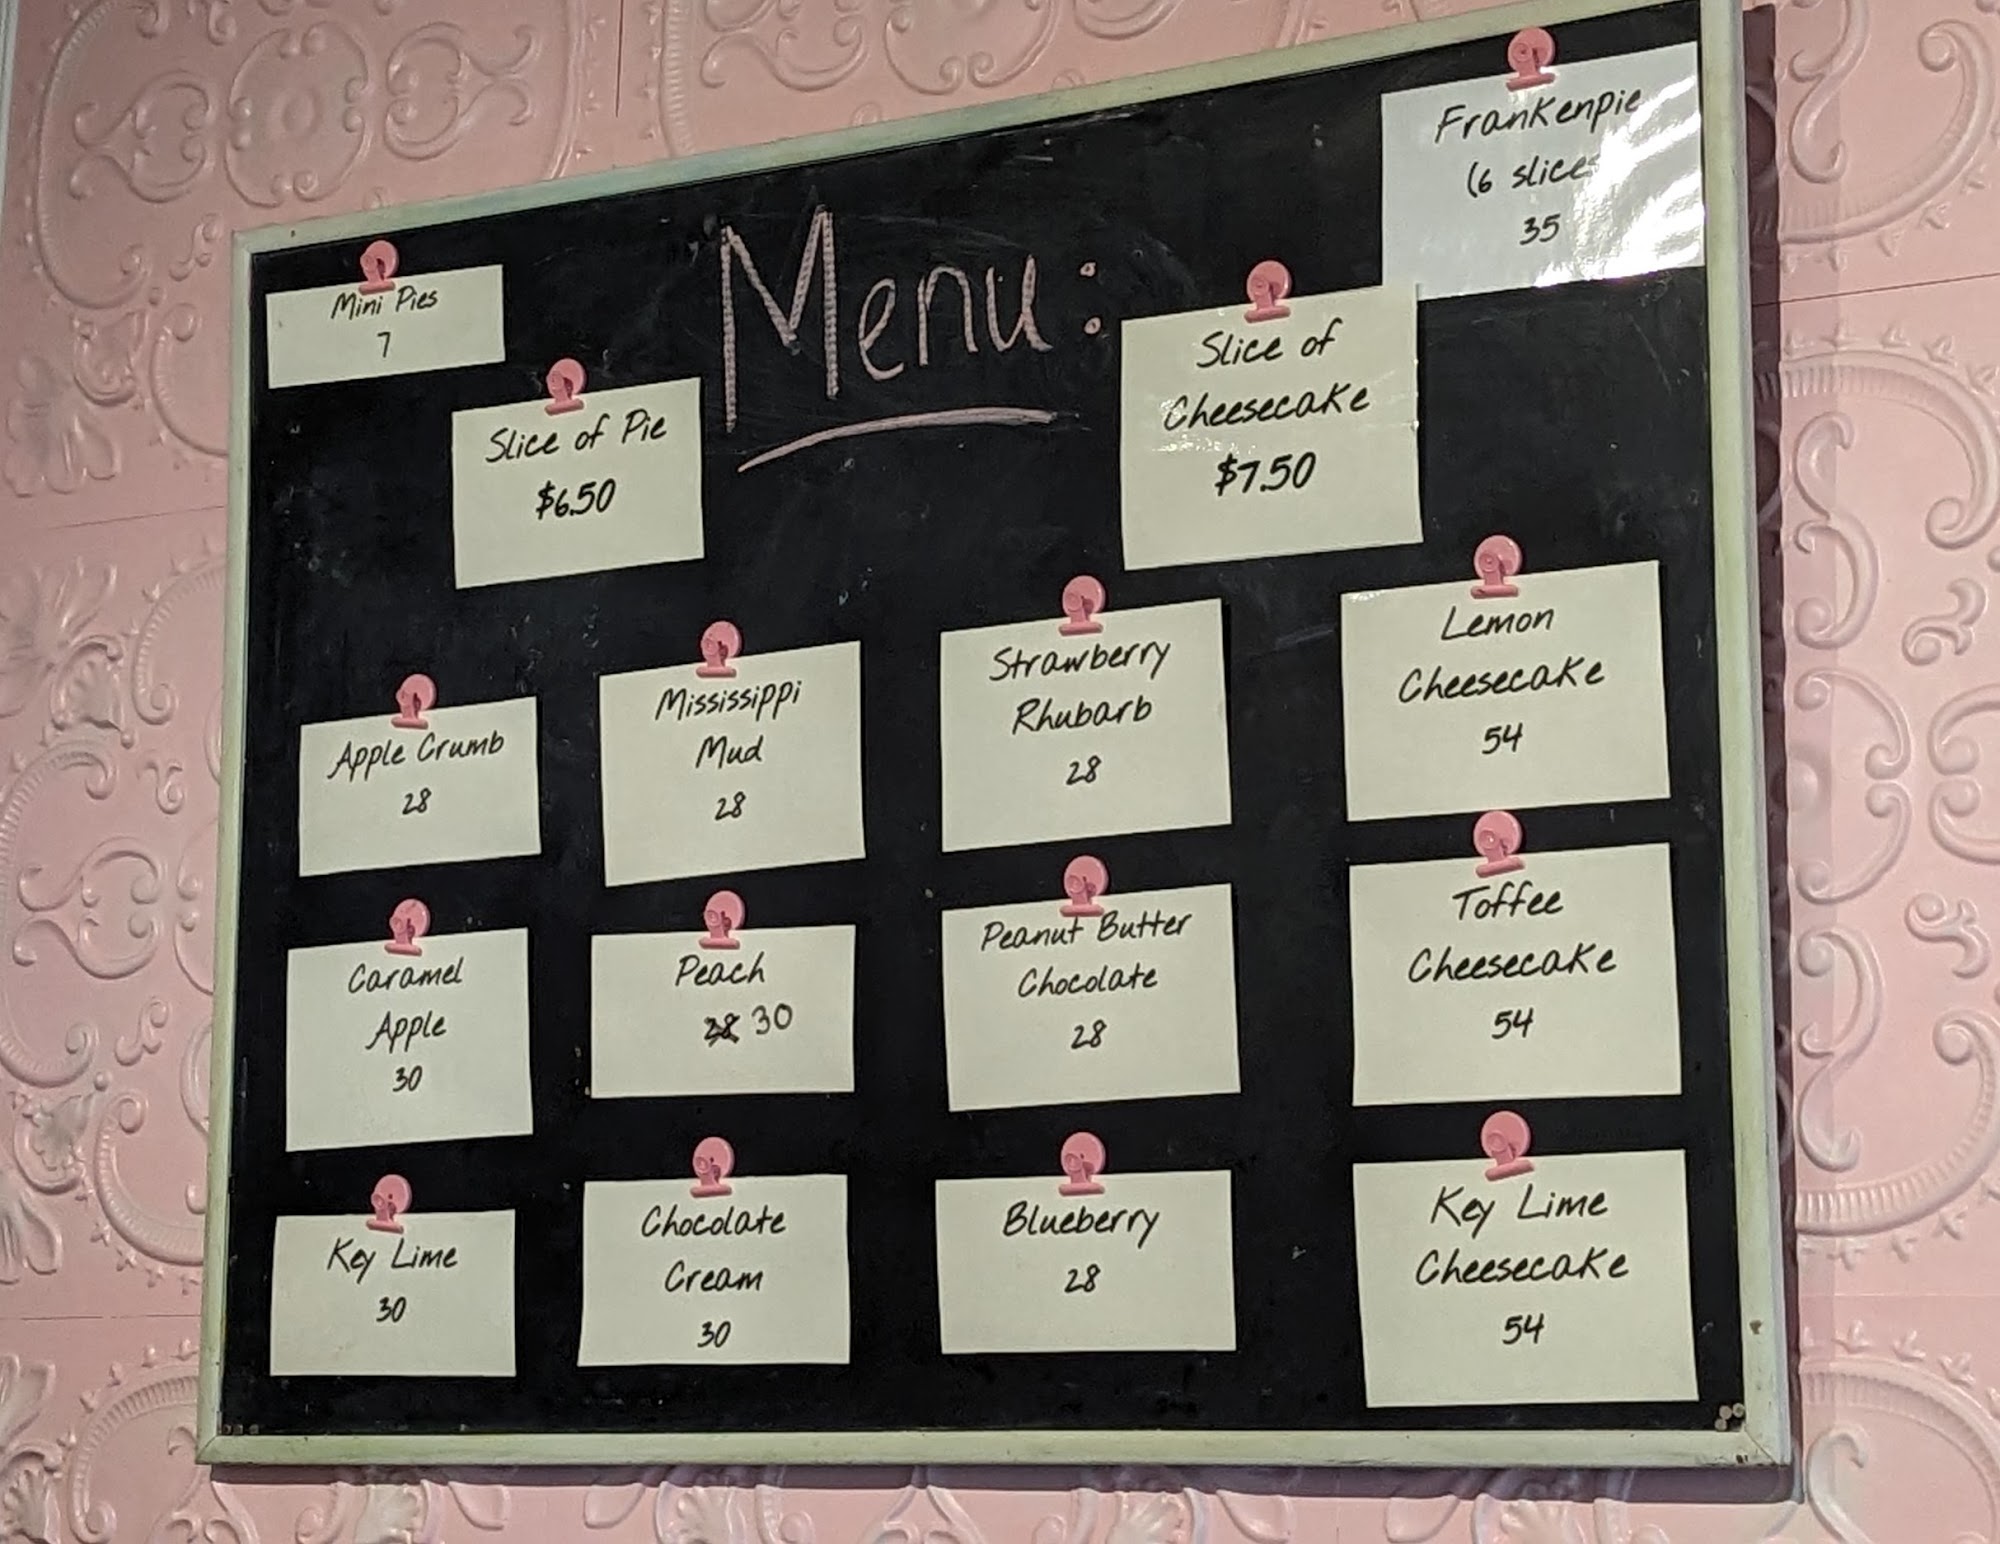 Menu:
Mini Pies
7
Slice of Pie
$6.50
Slice of
Cheesecake
$7.50
Frankenpie
(6 slices
35
Apple Crumb
28
Mississippi
Mud
28
Strawberry
Rhubarb
28
Lemon
Cheesecake
54
Caramel
Apple
30
Peach
28 30
Peanut Butter
Chocolate
28
Toffee
Cheesecake
54
Key Lime
30
Chocolate
Cream
30
Blueberry
28
Key Lime
Cheesecake
54